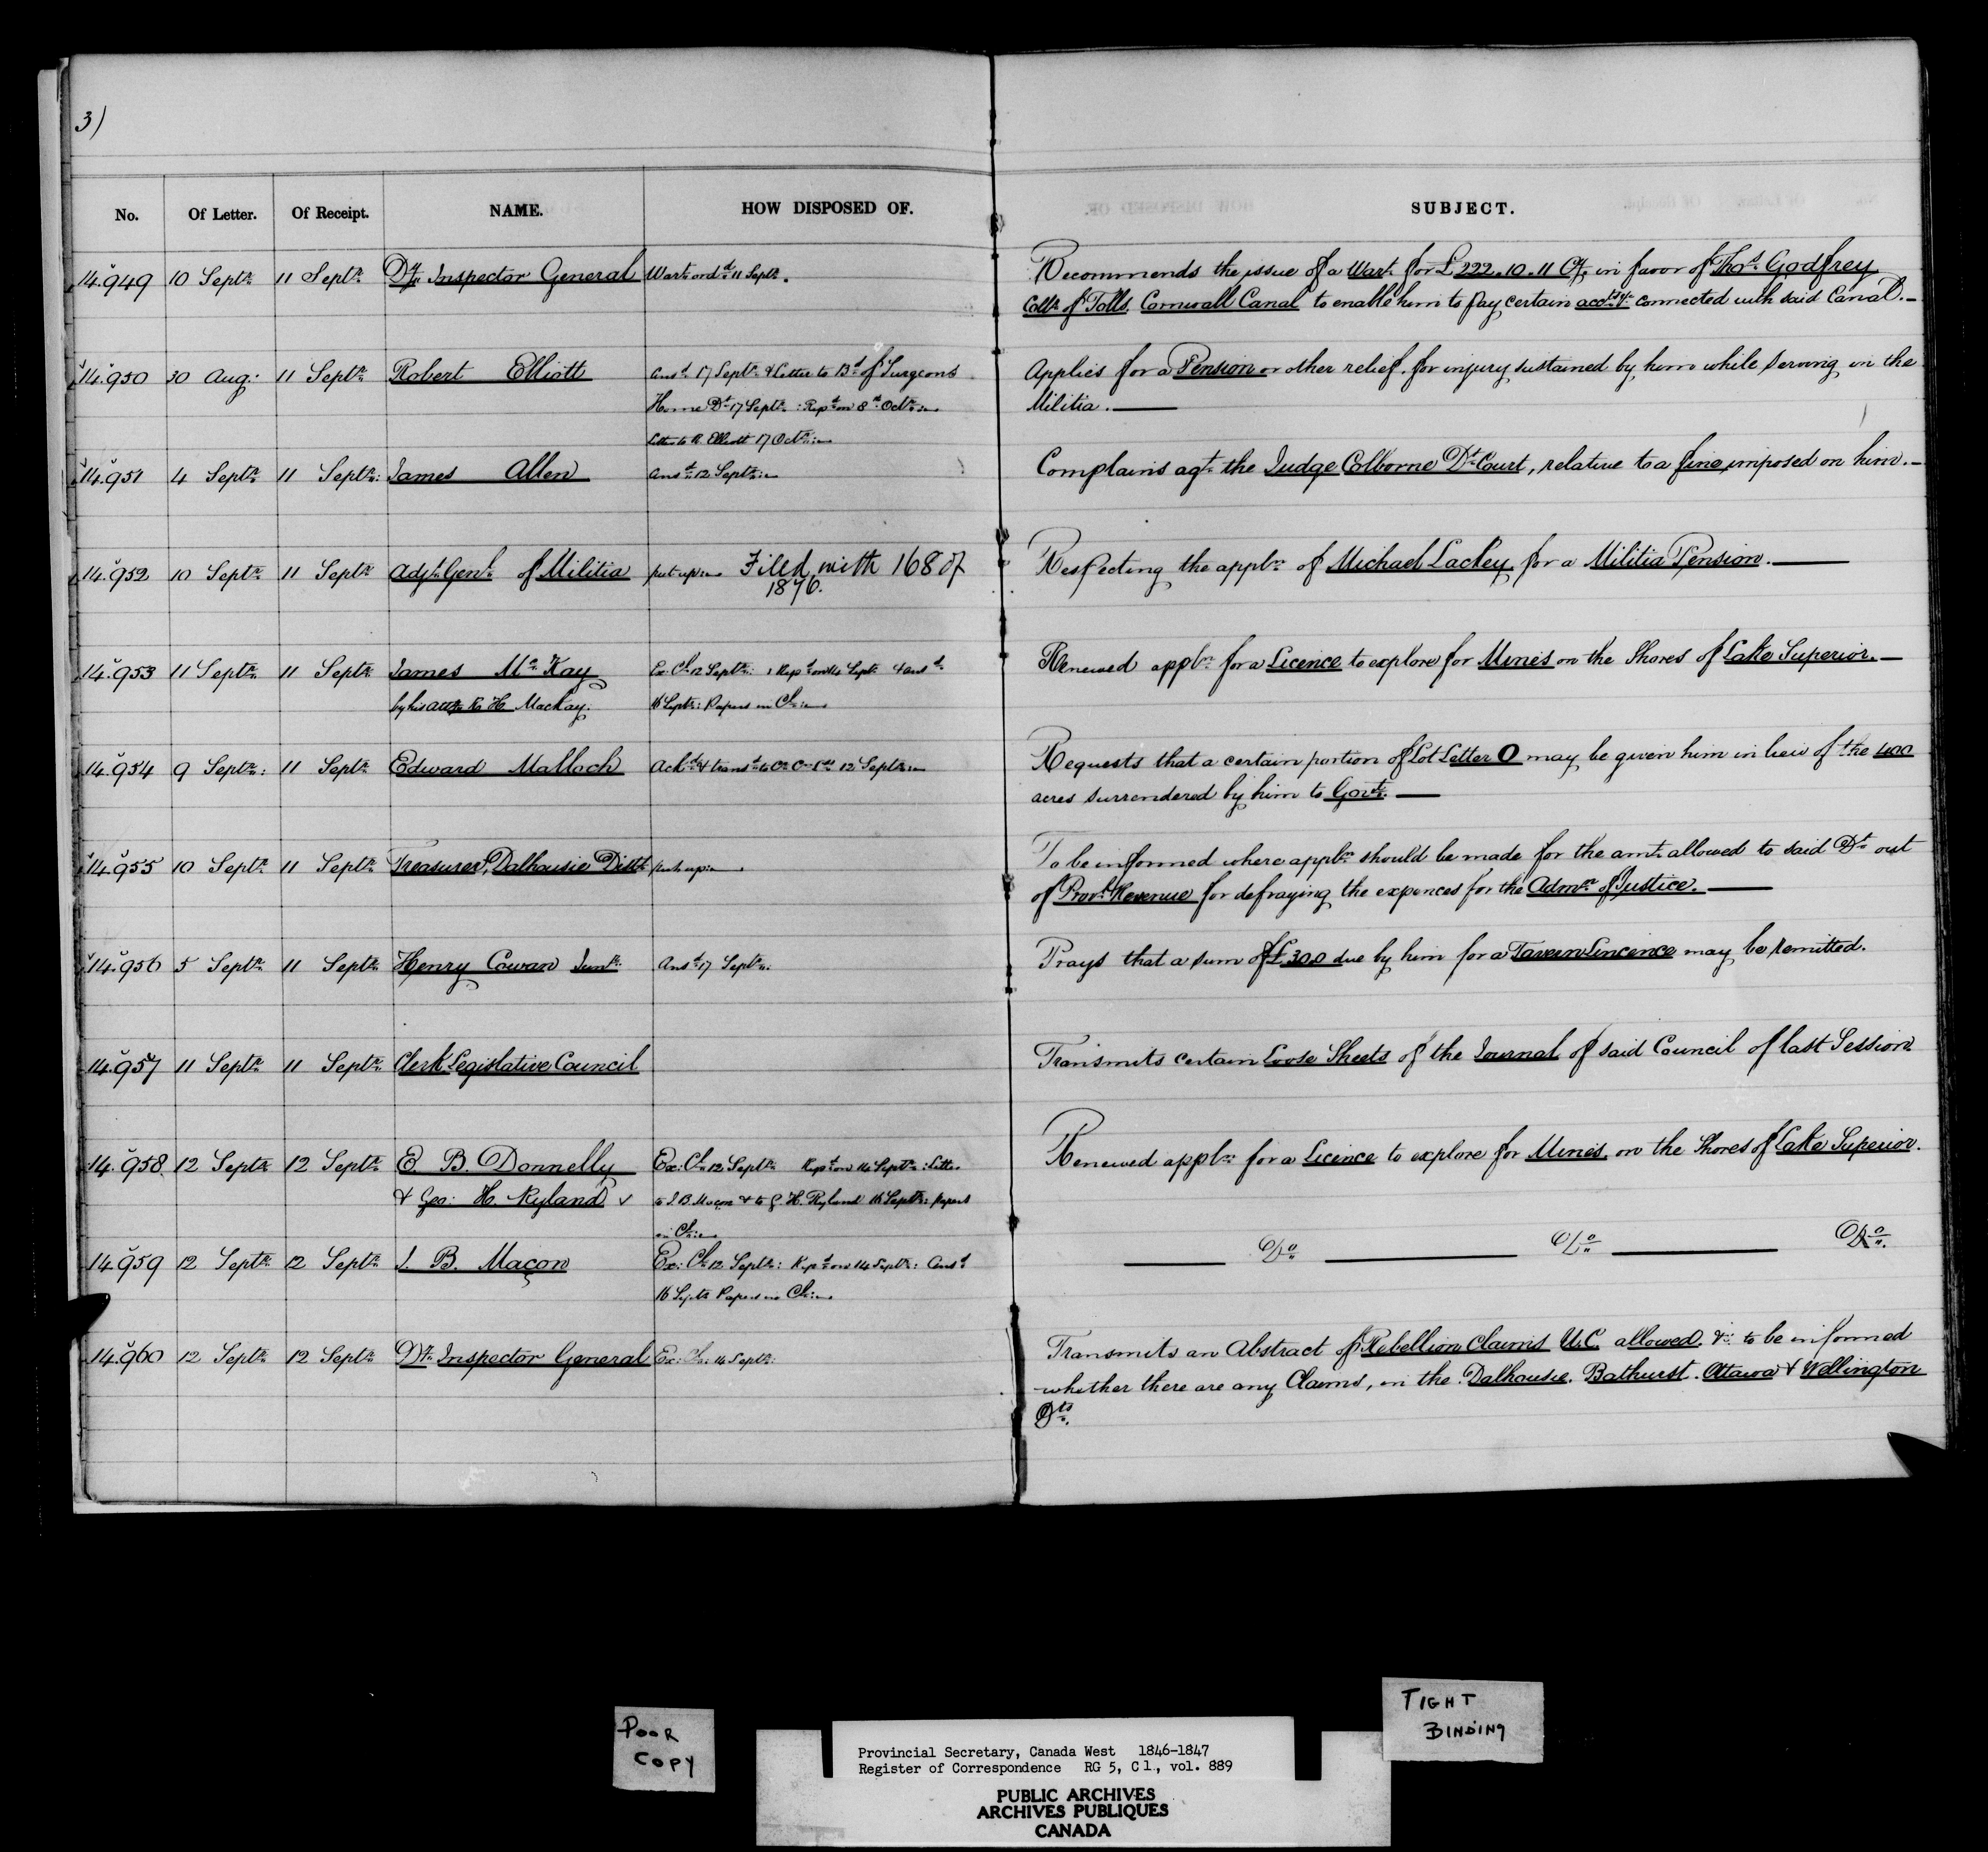 3)
No. Of Letter. Of Receipt. NAME. HOW DISPOSED OF. SUBJECT.
14.949 10 Septr 11 Septr Dy Inspector General Wart ordd 11 Septr. Recommends the issue of a Wart for £222.10.11 Cy, in favor of Thos Godfrey
Collr of Tolls, Cornwall Canal to enable him to pay certain accts &c connected with said Canal.—
14.950 30 Aug: 11 Septr Robert Elliott Ansd 17 Septr & Letter to Bd of Surgeons Applies for a Pension or other relief, for injury sustained by him while serving in the
Home Dt 17 Septr: Repd on 8th Octr: Militia.—
Letter to R. Elliott 17 Octr:
14.951 4 Septr 11 Septr: James Allen Ansd 12 Septr: Complains agt the Judge Colborne Dt Court, relative to a fine imposed on him.—
14.952 10 Septr 11 Septr Adjt Genl of Militia put up Filed with 168 of Respecting the appln of Michael Lackey for a Militia Pension.—
1876.
14.953 11 Septr 11 Septr James McKay Ex: Cl 12 Septr: Repd on 14 Septr & ansd Renewed appln for a Licence to explore for Mines on the Shores of Lake Superior.—
by his atty R H Mackay. 16 Septr: Papers in Cl:
14.954 9 Septr: 11 Septr Edward Malloch Ackd & transd to 12 Septr: Requests that a certain portion of Lot Letter O may be given him in lieu of the 400
acres surrendered by him to Govt.—
14.955 10 Septr 11 Septr Treasurer, Dalhousie Distt put up To be informed where appln should be made for the amt allowed to said Dt out
of Provl Revenue for defraying the expences for the Admn of Justice.—
14.956 5 Septr 11 Septr Henry Cowan Junr: Ansd 17 Septr. Prays that a sum of £300 due by him for a Tavern Lincence may be remitted.
14.957 11 Septr 11 Septr Clerk Legislative Council Transmits certain Loose Sheets of the Journal of said Council of last Session
14.958 12 Septr 12 Septr E. B. Donnelly Ex: Cl 12 Septr Repd on 14 Septr: Letter Renewed appln for a Licence to explore for Mines, on the Shores of Lake Superior.
& Geo: H. Ryland to J. B. Maçon & to G. H. Ryland 16 Septr: Papers
in Cl:
14.959 12 Septr 12 Septr J. B. Maçon Ex: Cl 12 Septr: Repd on 14 Septr: Ansd — Do — Do — Do.
16 Septr Papers in Cl:
14.960 12 Septr 12 Septr Dy Inspector General Ex: Cl: 14 Septr: Transmits an Abstract of Rebellion Claims U.C. allowed, &: to be informed
whether there are any Claims, in the Dalhousie, Bathurst, Ottawa & Wellington
Dts.
POOR
COPY
TIGHT
BINDING
Provincial Secretary, Canada West 1846-1847
Register of Correspondence RG 5, C1., vol. 889
PUBLIC ARCHIVES
ARCHIVES PUBLIQUES
CANADA